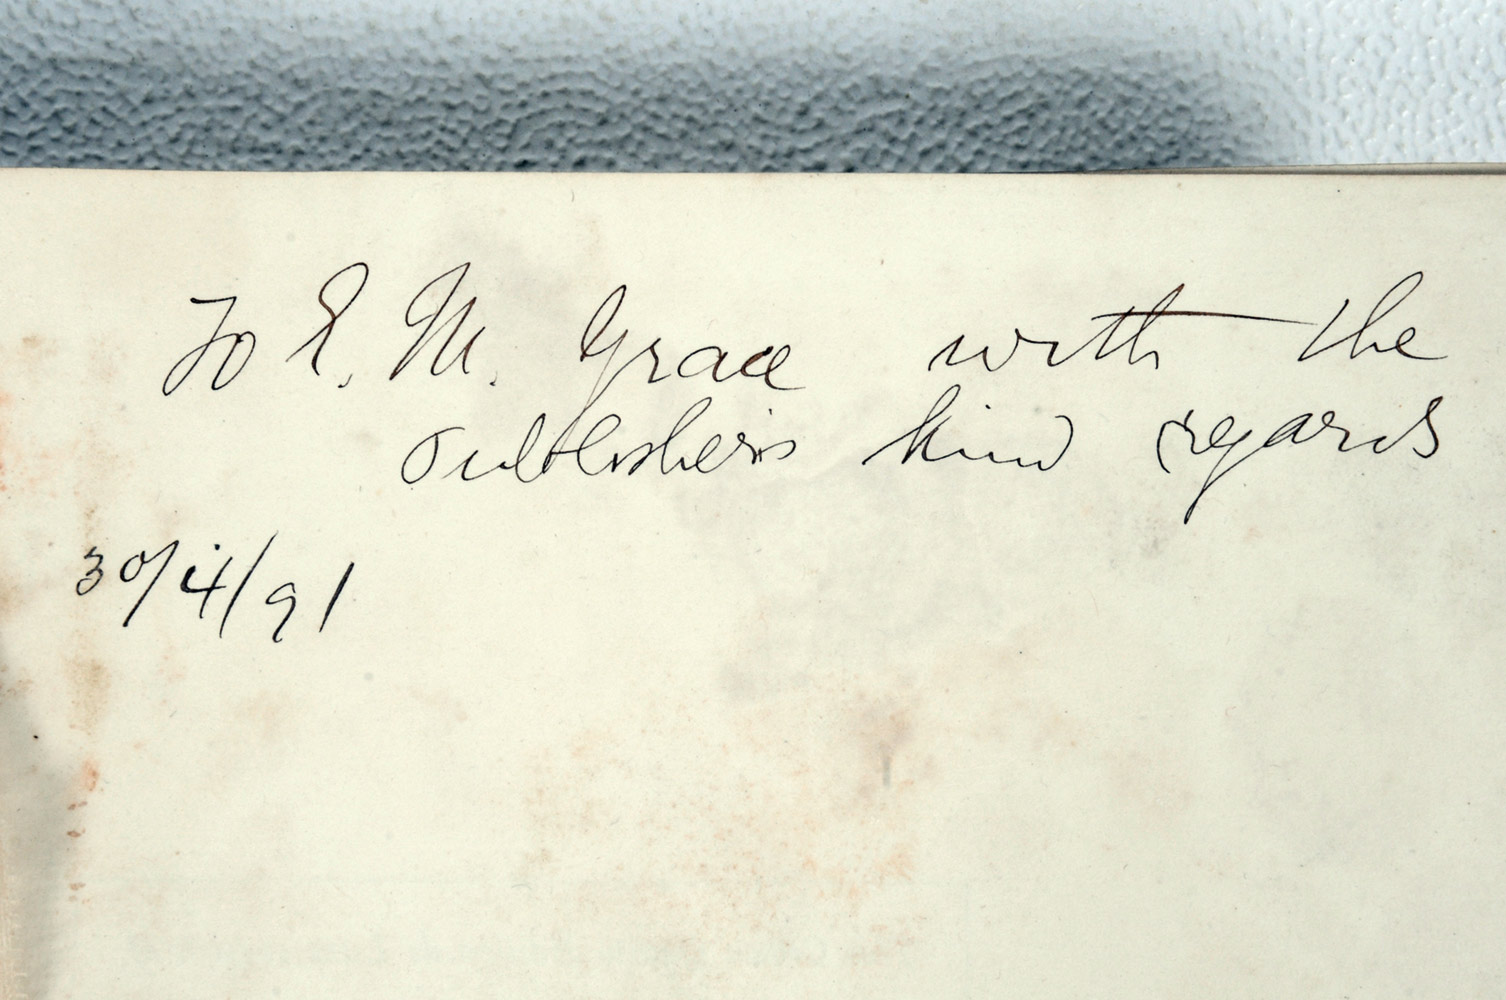 To E. M. Grace with the
Publishers kind regards
30/4/91